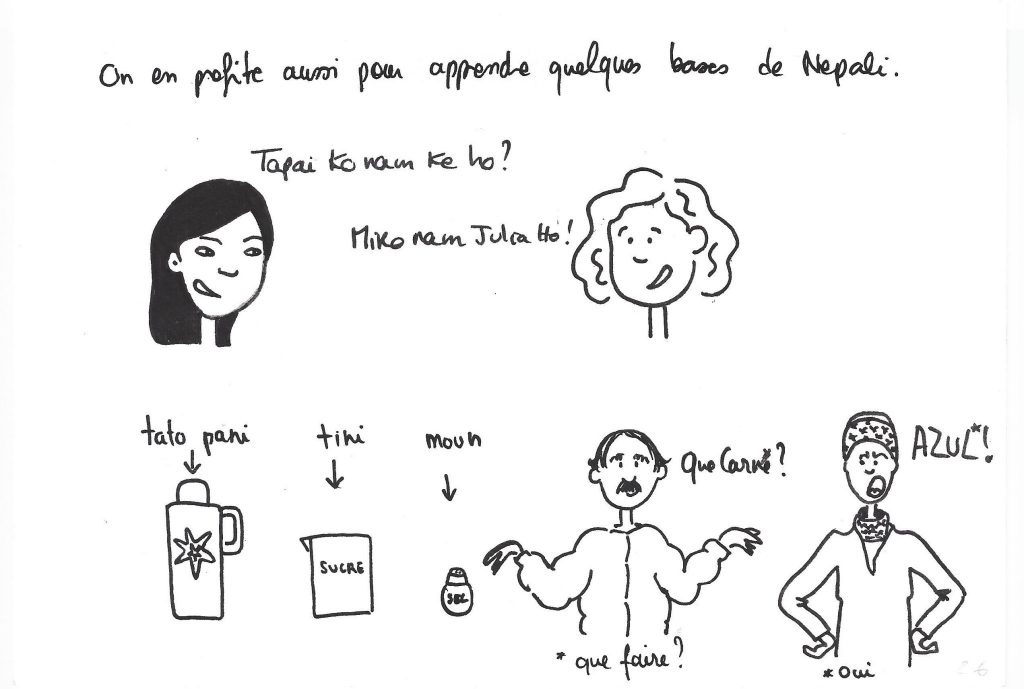 On en profite aussi pour apprendre quelques bases de Nepali.
Tapai ko nam ke ho?
Miko nam Julia Ho!
tato pani
tini
moun
Que Carné*?
AZUL*!
SUCRE
SEL
* que faire?
* oui
26